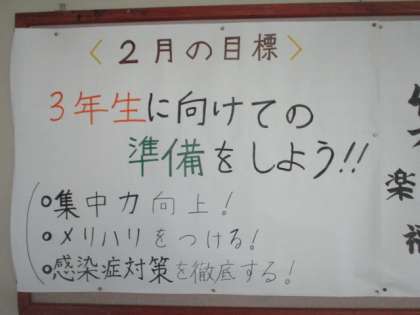 〈２月の目標〉
３年生に向けての
準備をしよう!!
集中力向上!
メリハリをつける!
感染症対策を徹底する!
楽